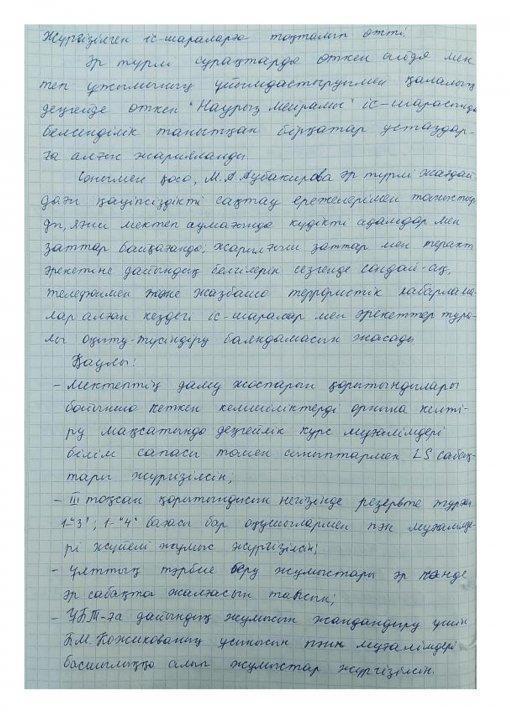 Жүргізілген іс-шараларға тоқталып өтті.
Әр түрлі сұрақтарда өткен айда мек
теп ұжымының ұйымдастыруымен қалалық
деңгейде өткен "Наурыз мейрамы" іс-шарасында
белсенділік танытқан бірқатар ұстаздар-
ға алғыс жарияланды.
Сонымен қоса, М.А.Аубакирова әр түрлі жағдай
дағы қауіпсіздікті сақтау ережелерімен таныстыр
ды, яғни мектеп аумағында күдікті адамдар мен
заттар байқағанда, жарылғыш заттар мен теракт
әрекетіне дайындық белгілерін сезгенде сондай-ақ,
телефонмен және жазбаша террористік хабарлама-
лар алған кездегі іс-шаралар мен әрекеттер тура-
лы оқыту-түсіндіру баяндамасын жасады.
Қаулы:
- Мектептің даму жоспарын қорытындылары
бойынша кеткен кемшіліктерді орнына келті-
ру мақсатында деңгейлік курс мұғалімдері
білім сапасы төмен сыныптармен LS сабақ-
тары жүргізілсін;
- III тоқсан қорытындысын негізінде резервте тұрған
1-"3"; 1-"4" бағасы бар оқушылармен пән мұғалімде-
рі жүйелі жұмыс жүргізілсін;
- Ұлттық тәрбие беру жұмыстары әр пәнде
әр сабақта жалғасын тапсын;
- ҰБТ-ға дайындық жұмысын жандандыру үшін
Б.М.Кожикованың ұсынысын пән мұғалімдері
басшылыққа алып жұмыстар жүргізілсін.